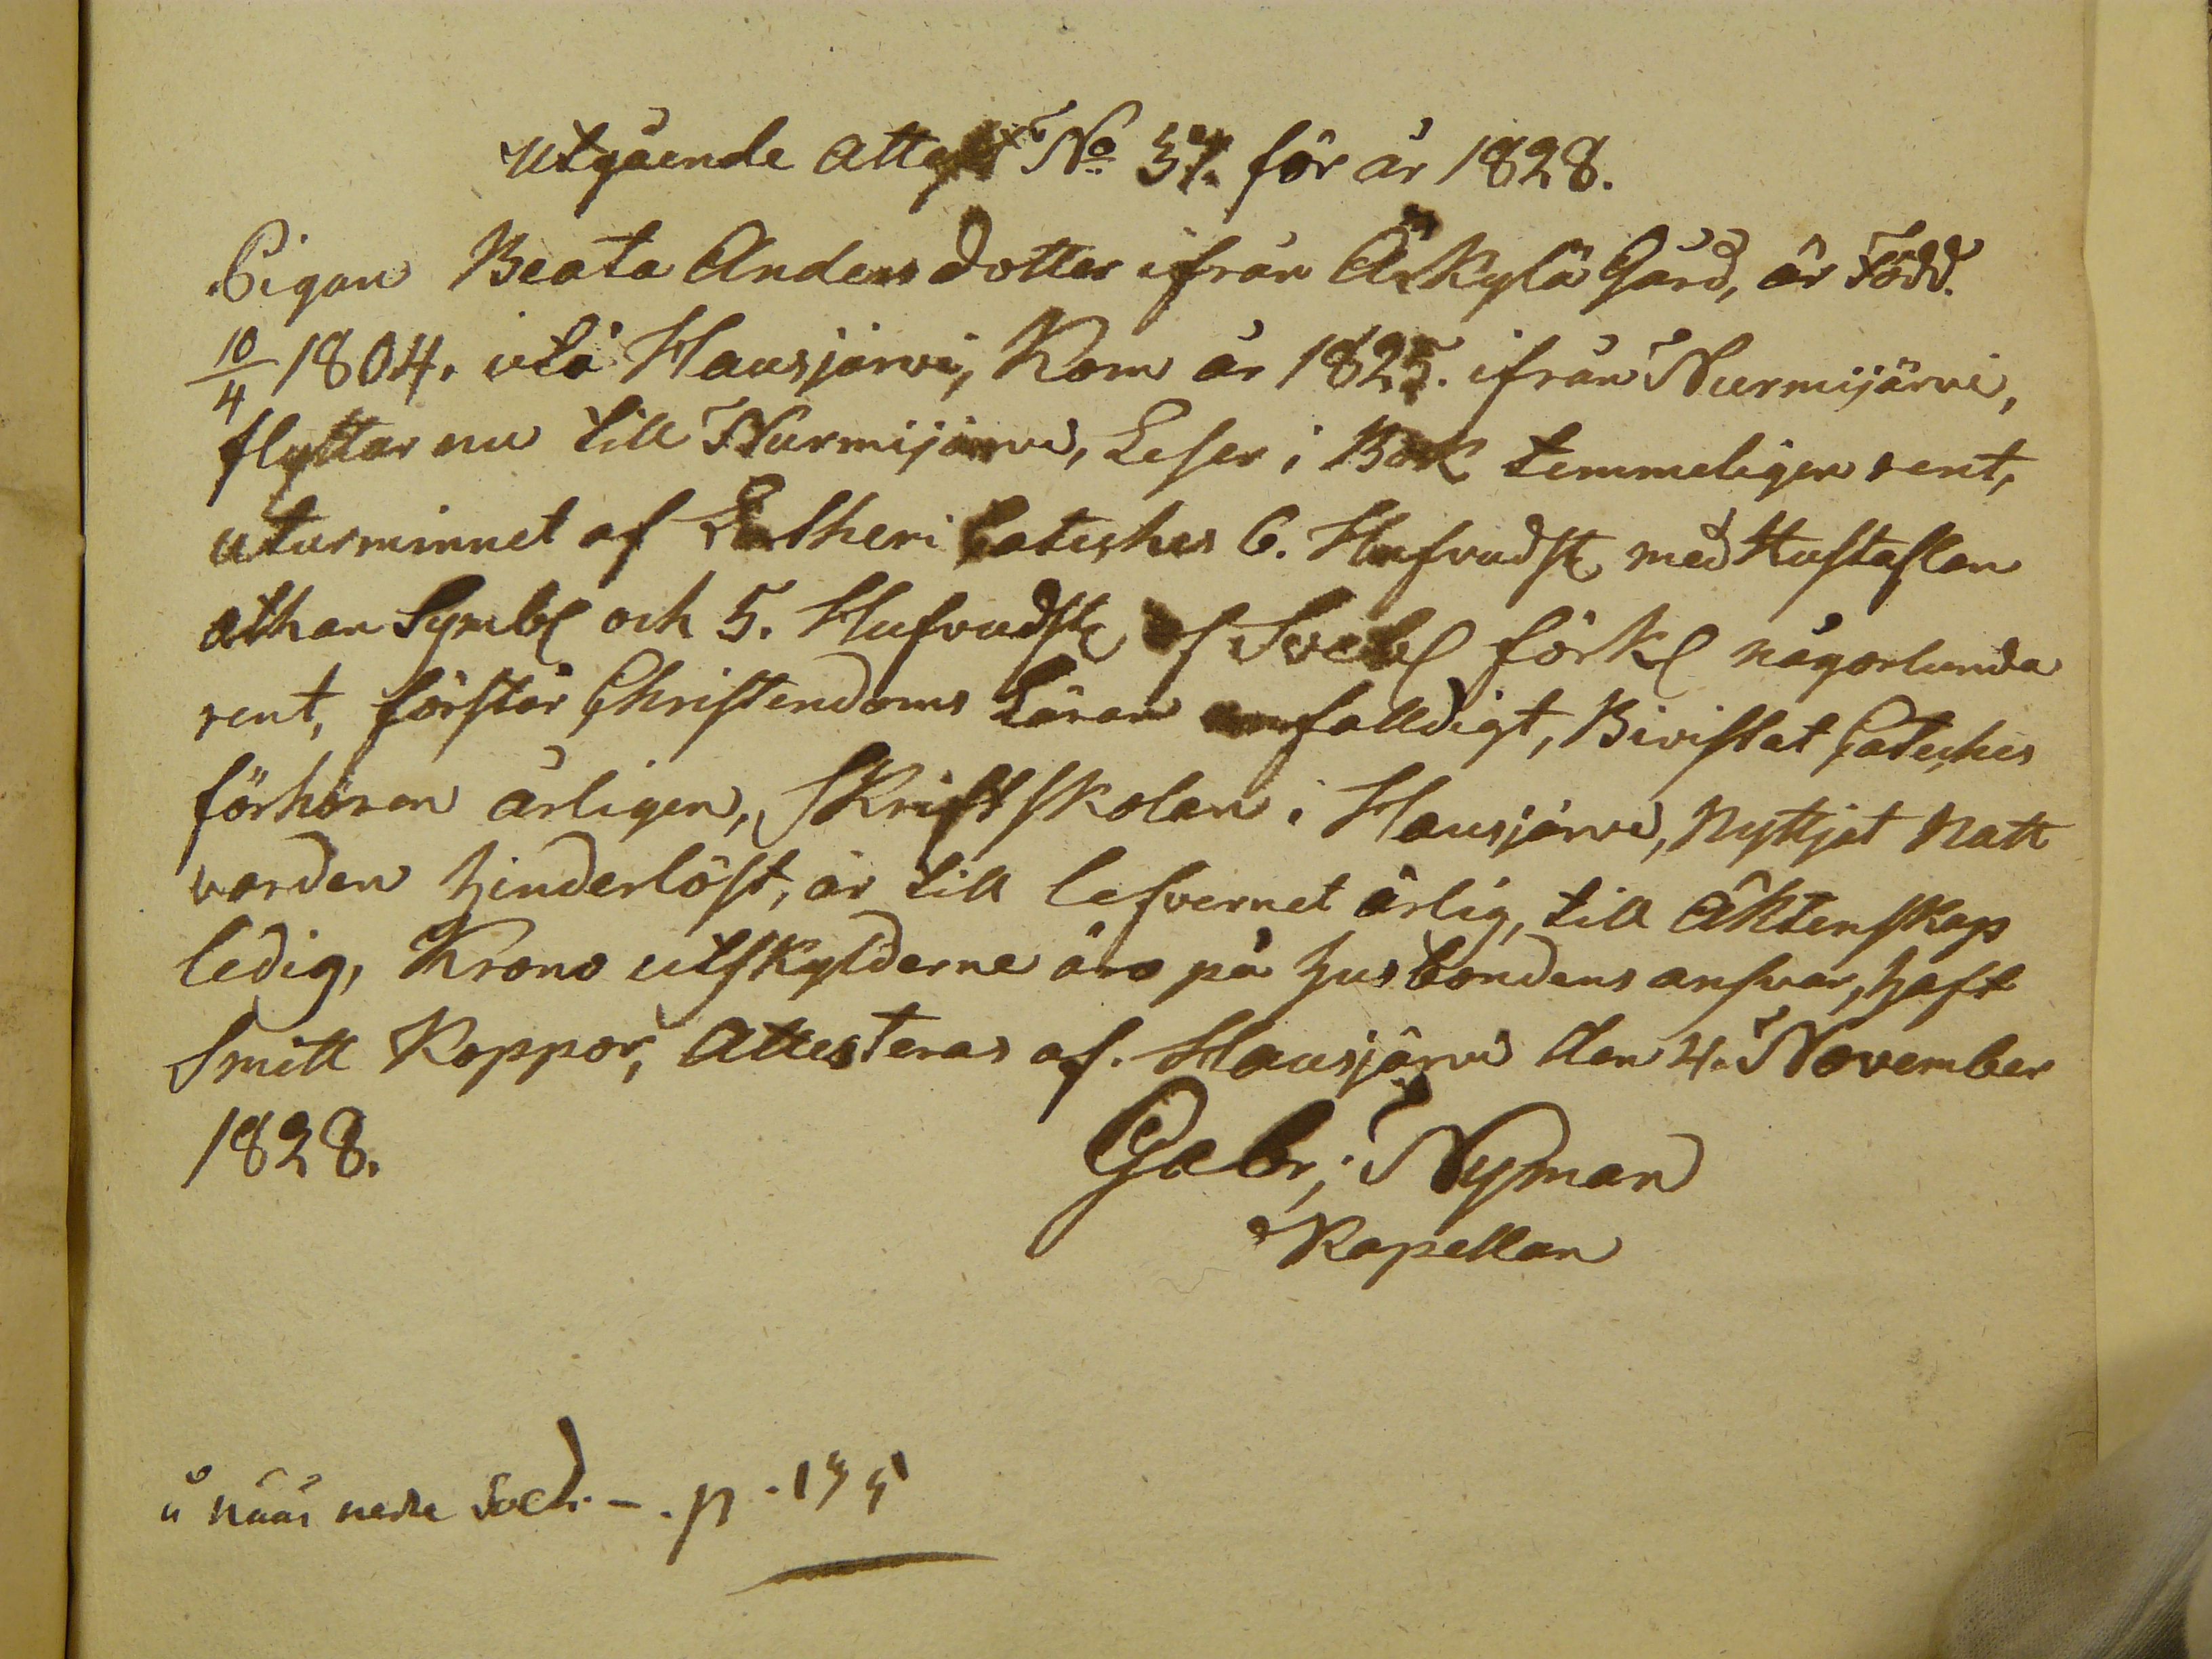 Utgående attest No 37. för år 1828.
Pigan Beata Anders dotter ifrån Äskylä Gård, är Född.
10/4 1804. utå Hausjärvi, Kom år 1825. ifrån Nurmijärvi,
flyttar nu till Nurmijärvi, Leser i Bok temmeligen rent,
uturminnet af Lutheri Cateches 6. Hufvudst med Hustaflan
athan Symb och 5. Hufvudst af Sveb förkl någorlunda
rent, förstår Christendoms Läran enfalldigt, Bivistat Cateches
förhören årligen, Skriftskolan i Hausjärvi, Nyttjat Natt
varden hinderlöst, är till lefvernet ärlig, till Äktenskap
ledig, Krono utskylderne äro på husbondens ansvar, haft
Smitt Koppor, Attesteras af. Hausjärvi den 4. November
1828.
Gabr; Nyman
Kapellan
p.